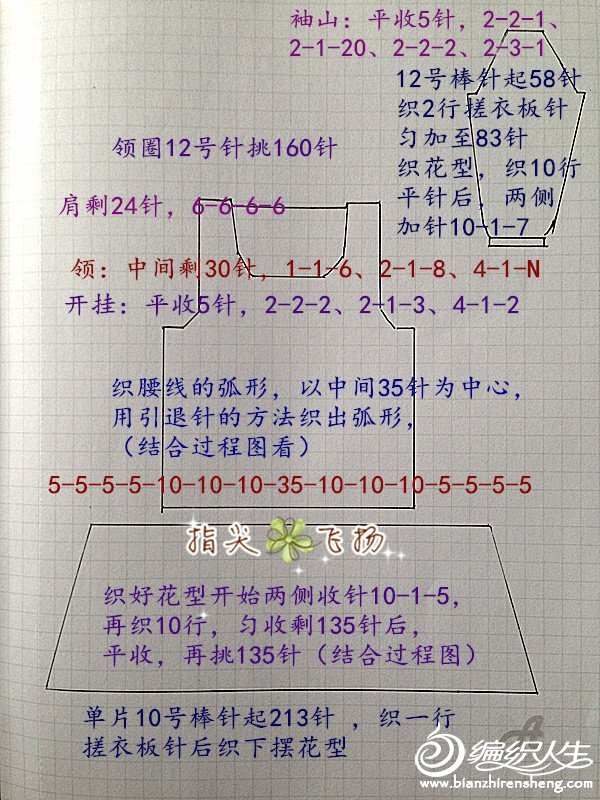 袖山：平收5针，2-2-1、
2-1-20、2-2-2、2-3-1
12号棒针起58针
织2行搓衣板针
匀加至83针
织花型，织10行
平针后，两侧
加针10-1-7
领圈12号针挑160针
肩剩24针，6-6-6-6
领：中间剩30针，1-1-6、2-1-8、4-1-N
开挂：平收5针，2-2-2、2-1-3、4-1-2
织腰线的弧形，以中间35针为中心，
用引退针的方法织出弧形，
（结合过程图看）
5-5-5-5-10-10-10-35-10-10-10-5-5-5-5
指尖飞扬
织好花型开始两侧收针10-1-5，
再织10行，匀收剩135针后，
平收，再挑135针（结合过程图）
单片10号棒针起213针 ，织一行
搓衣板针后织下摆花型
编织人生
www.bianzhirensheng.com